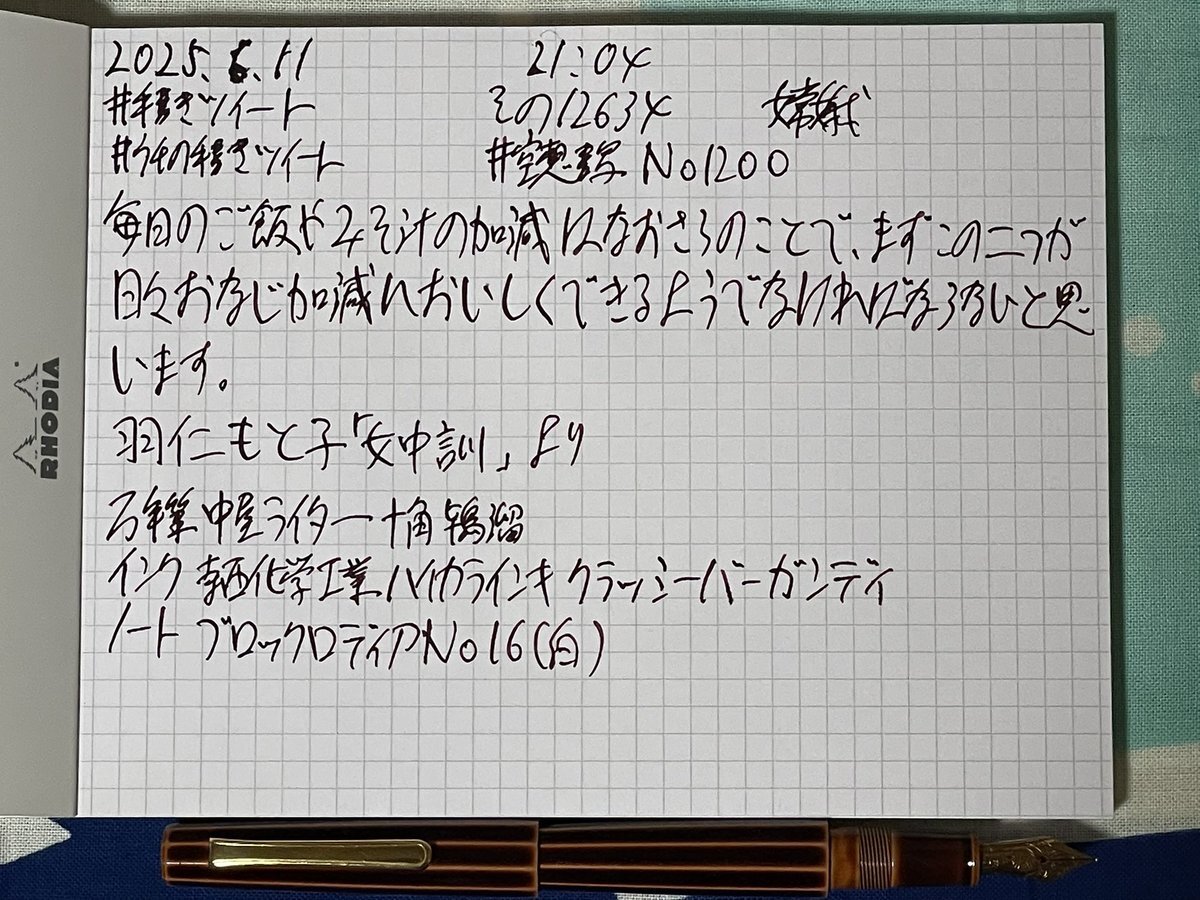 2025.6.11 21:04
#手書きツイート その12634 嫦娥
#今日の手書きツイート #空想書写 No1200
毎日のご飯やみそ汁の加減はなおさらのことで、まずこの二つが
日々おなじ加減においしくできるようでなければならないと思
います。
羽仁もと子「女中訓」より
万年筆 中屋ライター十角 溜
インク 化学工業ハイカラインキ クラッシーバーガンディ
ノート ブロックロディアNo16(白)
RHODIA